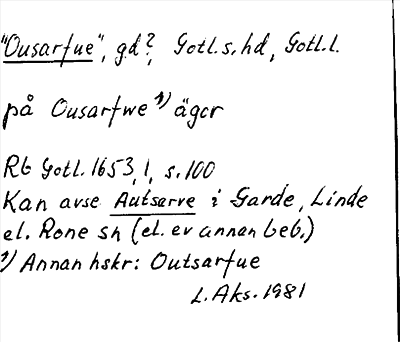 "Ousarfue", gd?, Gotl.s.hd, Gotl.l.
på Ousarfwe ¹) ägor
Rb Gotl. 1653,1, s.100
Kan avse Autsarve i Garde, Linde
el. Rone sn (el. ev annan beb.)
¹) Annan hskr: Outsarfue
L.Aks. 1981